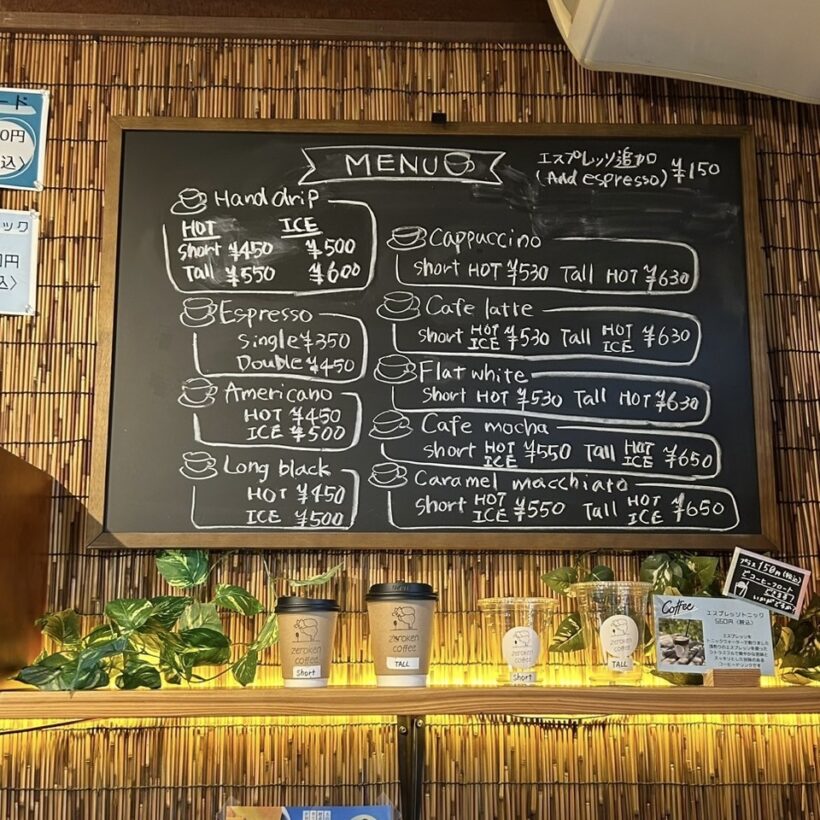 MENU
エスプレッソ追加
(Add espresso) ¥150
Hand drip
HOT ICE
Short ¥450 ¥500
Tall ¥550 ¥600
Espresso
Single ¥350
Double ¥450
Americano
HOT ¥450
ICE ¥500
Long black
HOT ¥450
ICE ¥500
Cappuccino
Short HOT ¥530 Tall HOT ¥630
Cafe latte
Short HOT ICE ¥530 Tall HOT ICE ¥630
Flat white
Short HOT ¥530 Tall HOT ¥630
Cafe mocha
Short HOT ICE ¥550 Tall HOT ICE ¥650
Caramel macchiato
Short HOT ICE ¥550 Tall HOT ICE ¥650
ード
0円
込〉
ック
円
込〉
zeroken
coffee
Short
zeroken
coffee
TALL
Short
TALL
Coffee
エスプレッソトニック
550円〈税込〉
エスプレッソを
トニックウォーターで割りました
プラス150円(税込)
コーヒーフロート
いかがですか